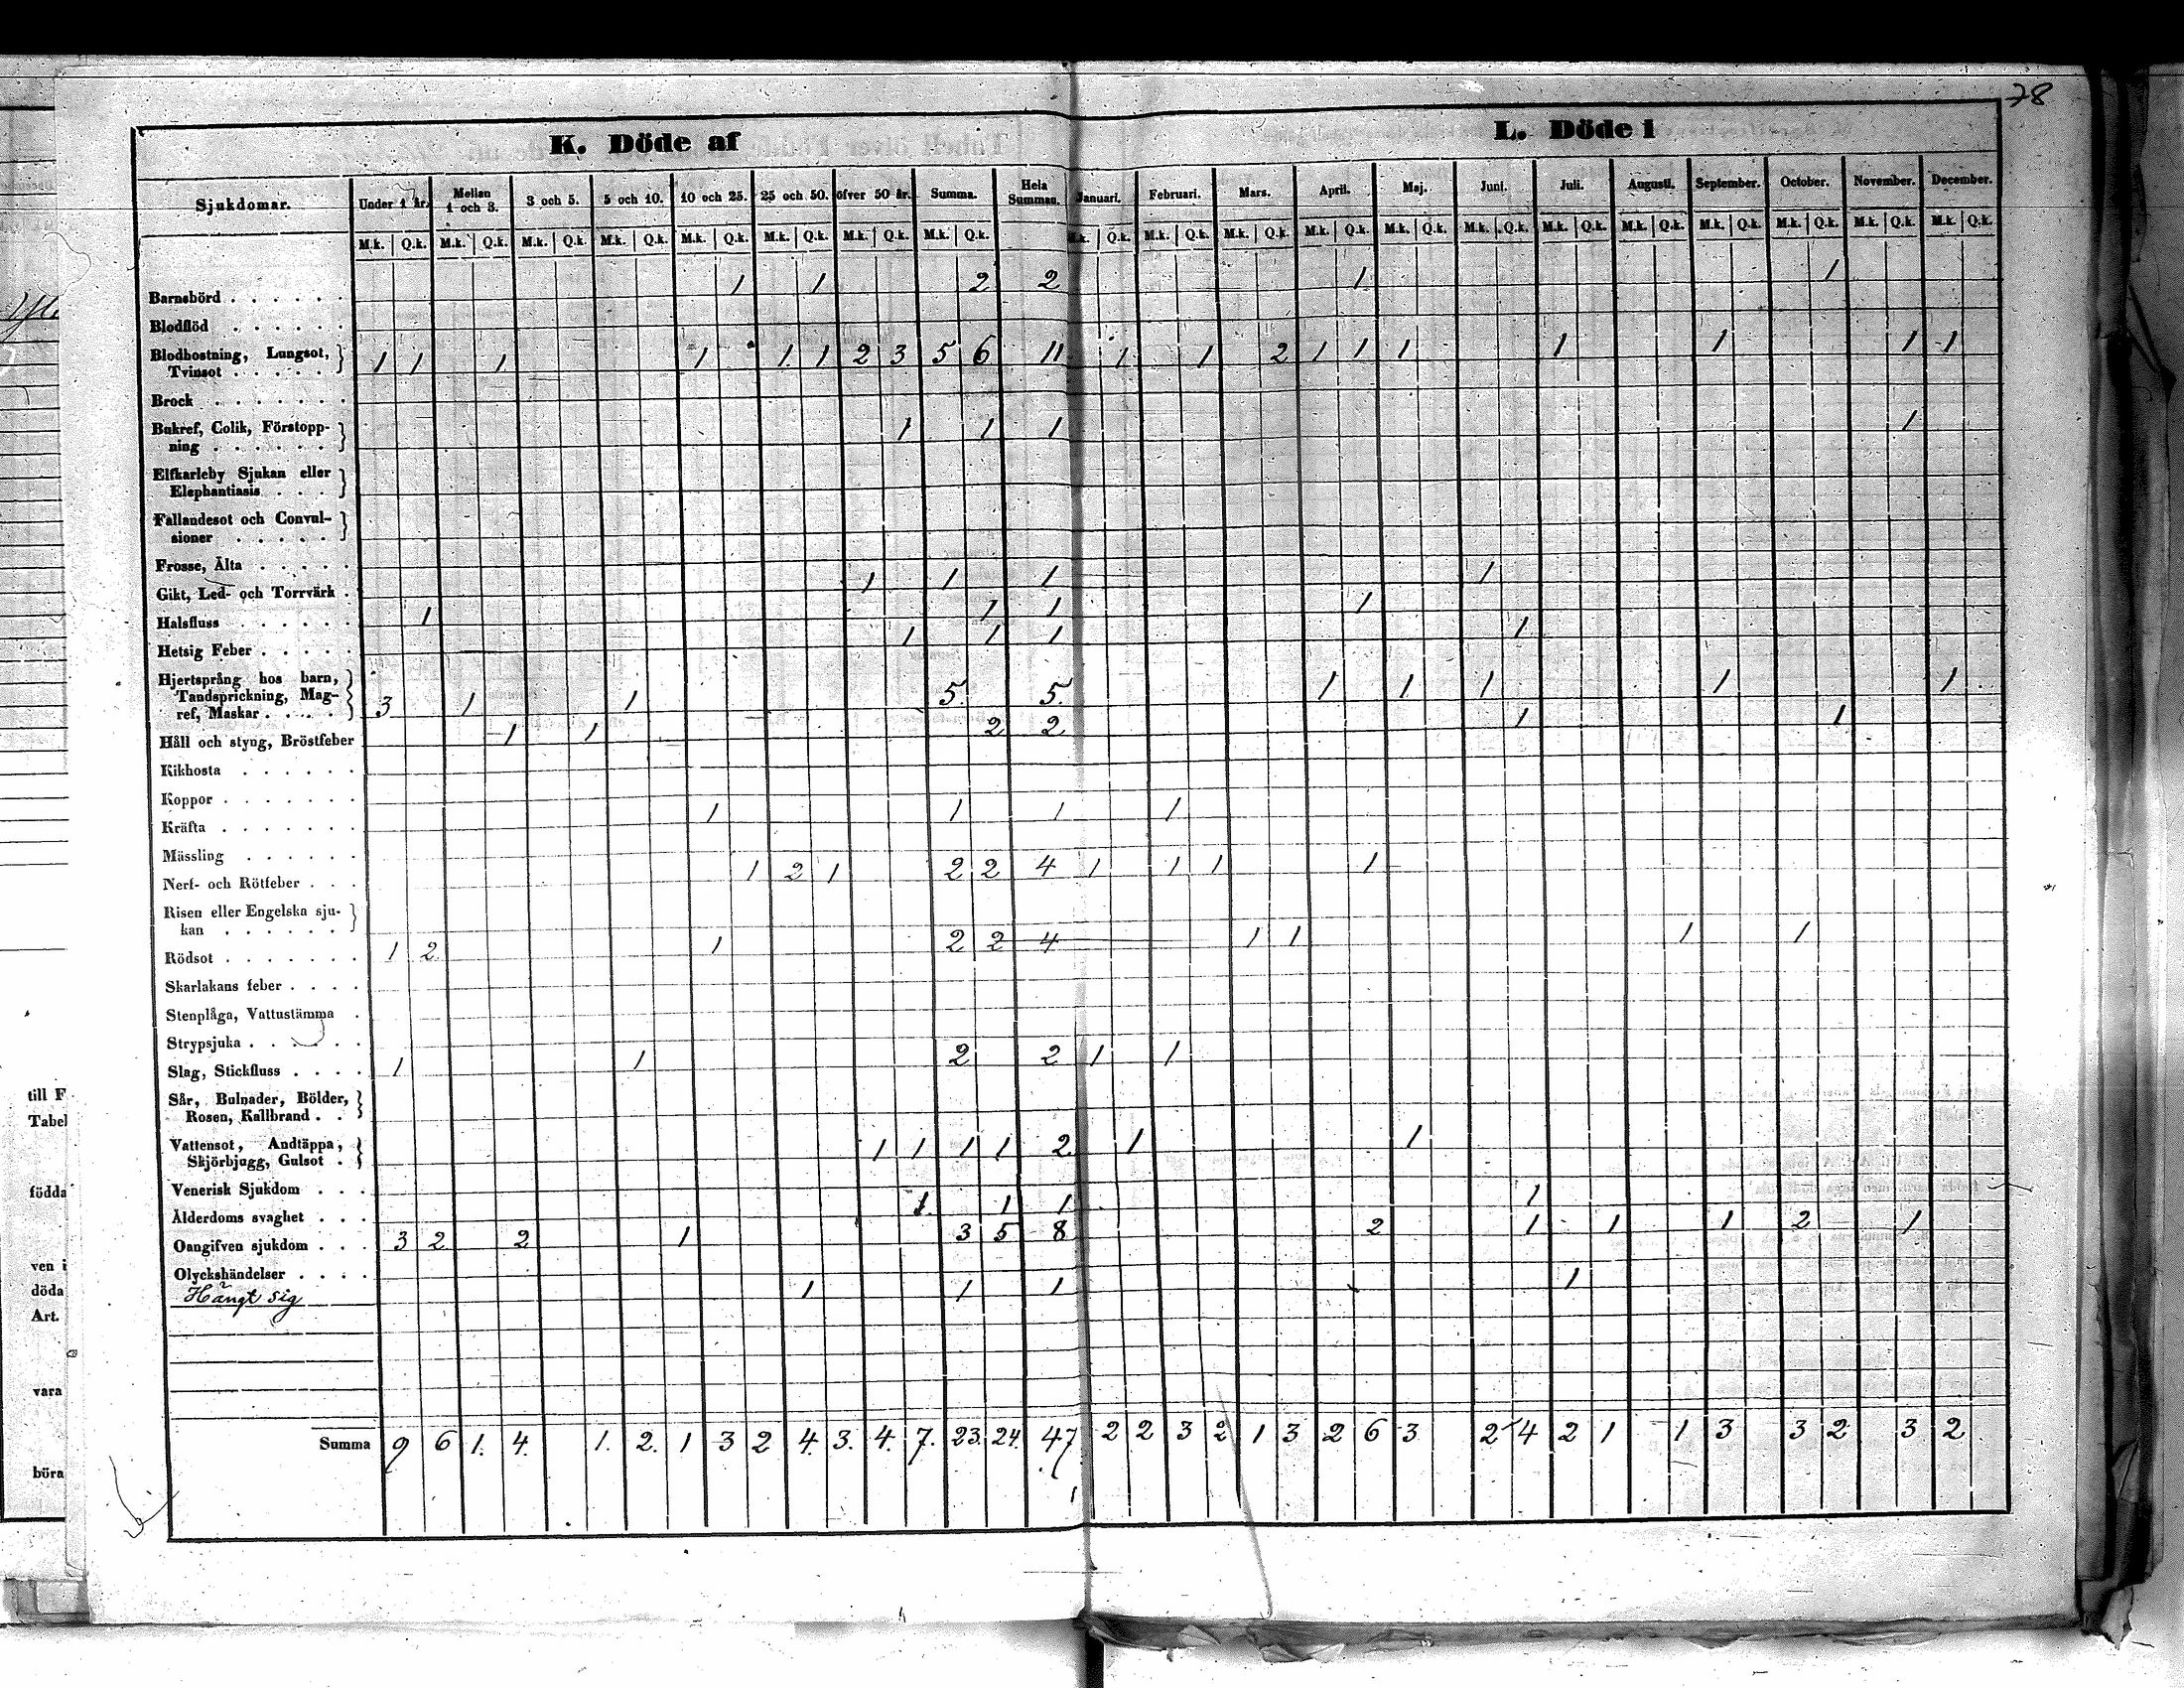 78
K. Döde af
L. Döde i
Sjukdomar. Under 1 år. Mellan 1 och 3. 3 och 5. 5 och 10. 10 och 25. 25 och 50. öfver 50 år. Summa. Hela Summan. Januari. Februari. Mars. April. Maj. Juni. Juli. Augusti. September. October. November. December.
M.k. Q.k. M.k. Q.k. M.k. Q.k. M.k. Q.k. M.k. Q.k. M.k. Q.k. M.k. Q.k. M.k. Q.k. M.k. Q.k. M.k. Q.k. M.k. Q.k. M.k. Q.k. M.k. Q.k. M.k. Q.k. M.k. Q.k. M.k. Q.k. M.k. Q.k. M.k. Q.k. M.k. Q.k. M.k. Q.k.
Barnsbörd . . . . . . 1 1 2 2 1 1
Blodflöd . . . . . .
Blodhostning, Lungsot,
Tvinsot . . . . . } 1 1 1 1 1 1 2 3 5 6 11 1 1 2 1 1 1 1 1 1 1
Brock . . . . . . .
Bukref, Colik, Förstopp-
ning . . . . . . } 1 1 1 1
Elfkarleby Sjukan eller
Elephantiasis . . . }
Fallandesot och Convul-
sioner . . . . . }
Frosse, Älta . . . . .
Gikt, Led- och Torrvärk . 1 1 1 1
Halsfluss . . . . . . 1 1 1 1
Hetsig Feber . . . . . 1 1 1 1
Hjertsprång hos barn,
Tandsprickning, Mag-
ref, Maskar . . . . } 3 1 1 5. 5. 1 1 1 1 1
Håll och styng, Bröstfeber 1 1 2 2 1 1
Kikhosta . . . . . .
Koppor . . . . . . .
Kräfta . . . . . . . 1 1 1 1
Mässling . . . . . .
Nerf- och Rötfeber . . . 1 2 1 2 2 4 1 1 1 1
Risen eller Engelska sju-
kan . . . . . . }
Rödsot . . . . . . . 1 2 1 2 2 4 1 1 1 1
Skarlakans feber . . . .
Stenplåga, Vattustämma .
Strypsjuka . . . . . .
Slag, Stickfluss . . . . 1 1 2 2 1 1
Sår, Bulnader, Bölder,
Rosen, Kallbrand . . }
Vattensot, Andtäppa,
Skjörbjugg, Gulsot . } 1 1 1 1 2 1 1
Venerisk Sjukdom . . .
Ålderdoms svaghet . . . 1 1 1 1
Oangifven sjukdom . . . 3 2 2 1 3 5 8 2 1 1 1 2 1
Olyckshändelser . . . .
Hängt sig 1 1 1 1
Summa 9 6 1. 4. 1. 2. 1 3 2 4. 3. 4. 7. 23. 24. 47 2 2 3 2 1 3 2 6 3 2 4 2 1 1 3 3 2 3 2
till F
Tabel
födda
ven i
döda
Art.
vara
böra